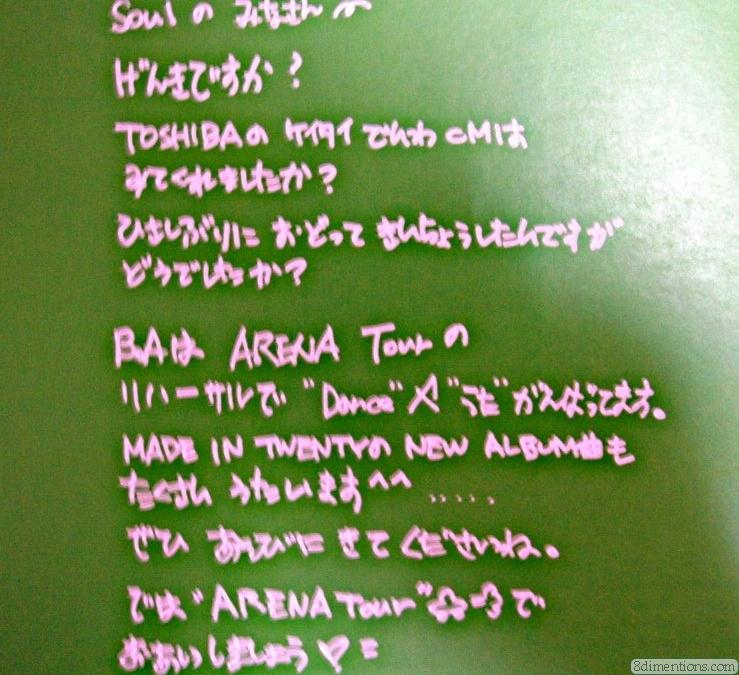 Soulの みなさん
げんきですか?
TOSHIBAの ケイタイ でんわ CMは
みてくれましたか?
ひさしぶりに おどって きんちょうしたんですが
どうでしたか?
BAは ARENA Tour の
リハーサルで "Dance" "うた" がんばってます。
MADE IN TWENTYの NEW ALBUM曲も
たくさん うたいます^^ .....
ぜひ あそびに きて くださいね。
では "ARENA Tour" で
おあいしましょう♡
8dimentions.com